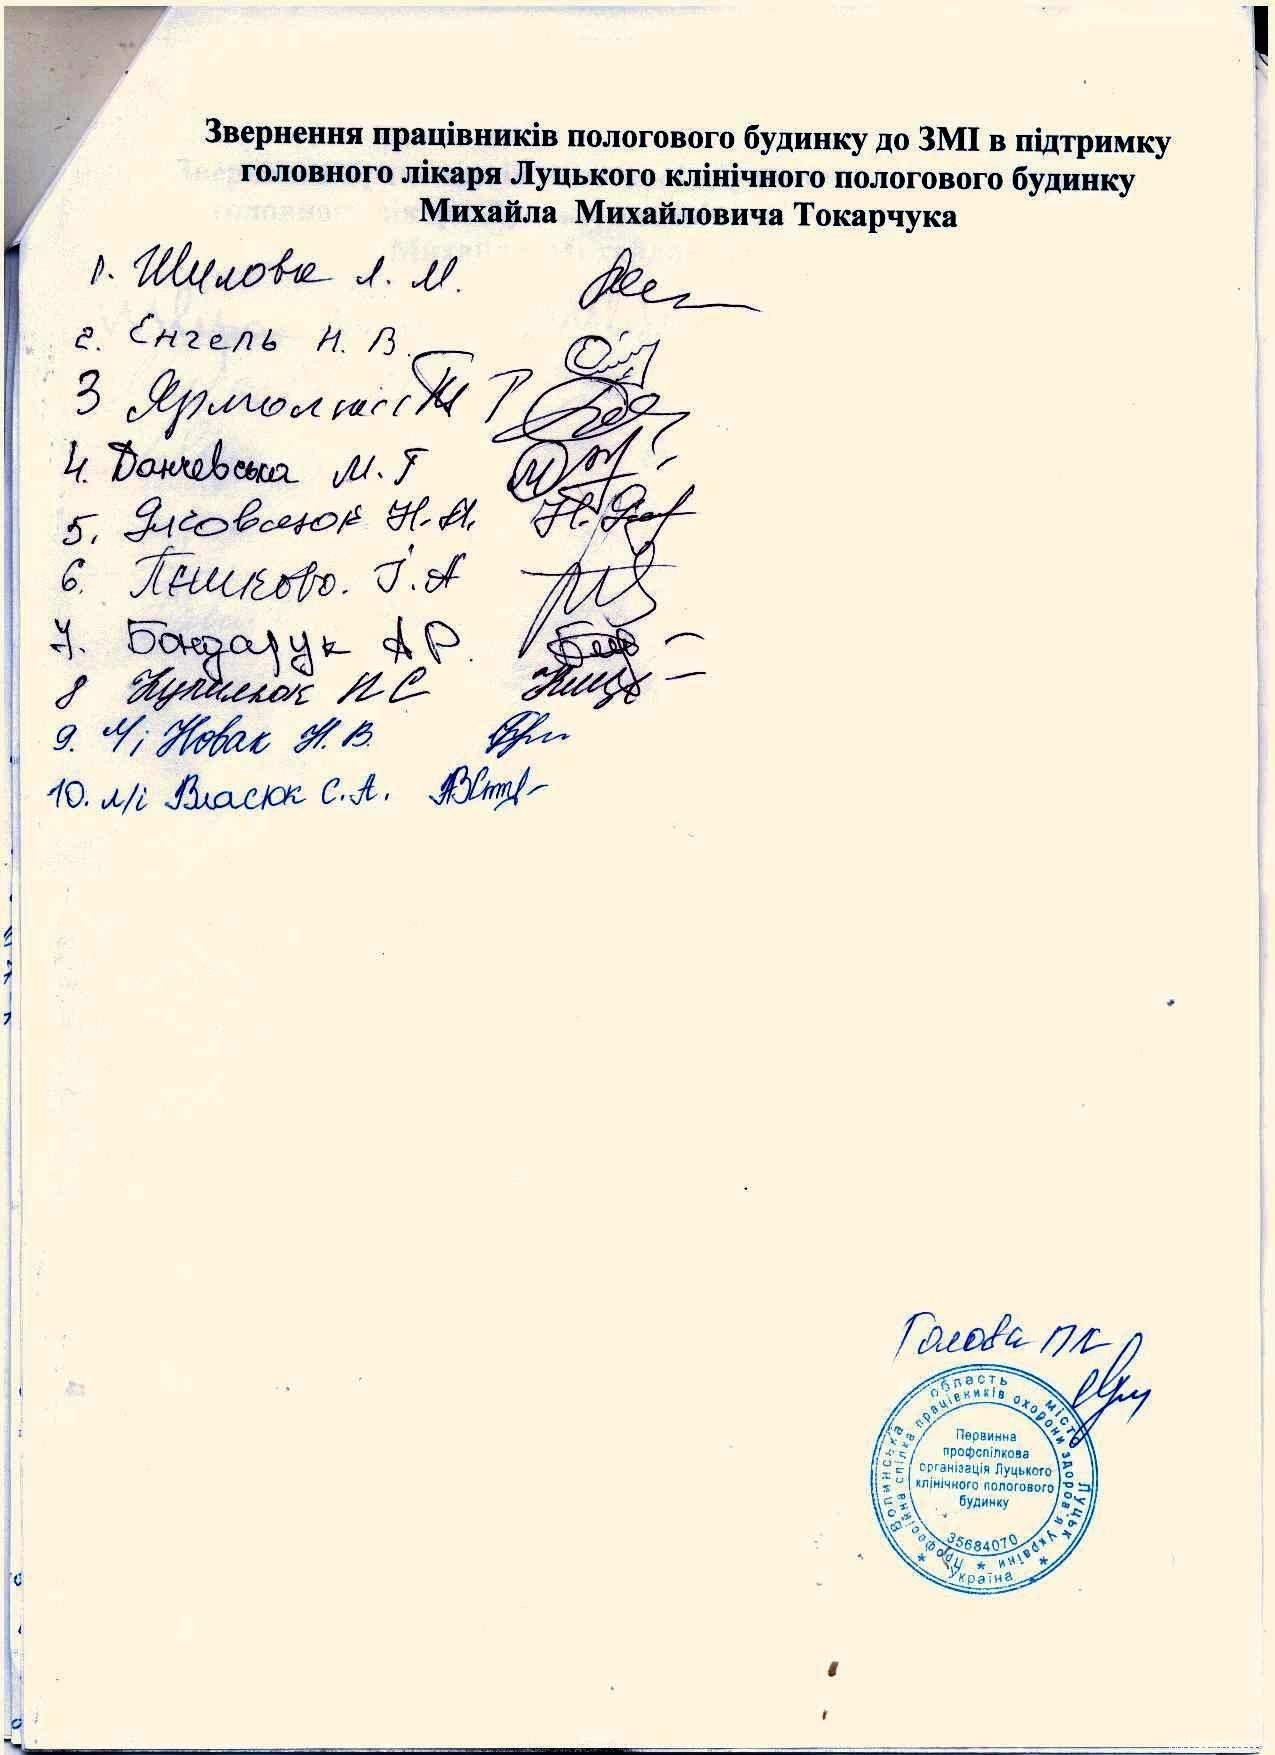 Звернення працівників пологового будинку до ЗМІ в підтримку
головного лікаря Луцького клінічного пологового будинку
Михайла Михайловича Токарчука
1. Шилова Л. М.
2. Енгель Н. В.
3
4. Данчевська М. Г
5. Яковлюк Н. Н.
6. Пашкова. Г. А
7. Бондарук А Р.
8
9. М/с Новак Н. В.
10. м/с Власюк С. А.
Голова ПК
Волинська область місто Луцьк
Професійна спілка працівників охорони здоров'я України
Первинна
профспілкова
організація Луцького
клінічного пологового
будинку
35684070
Україна